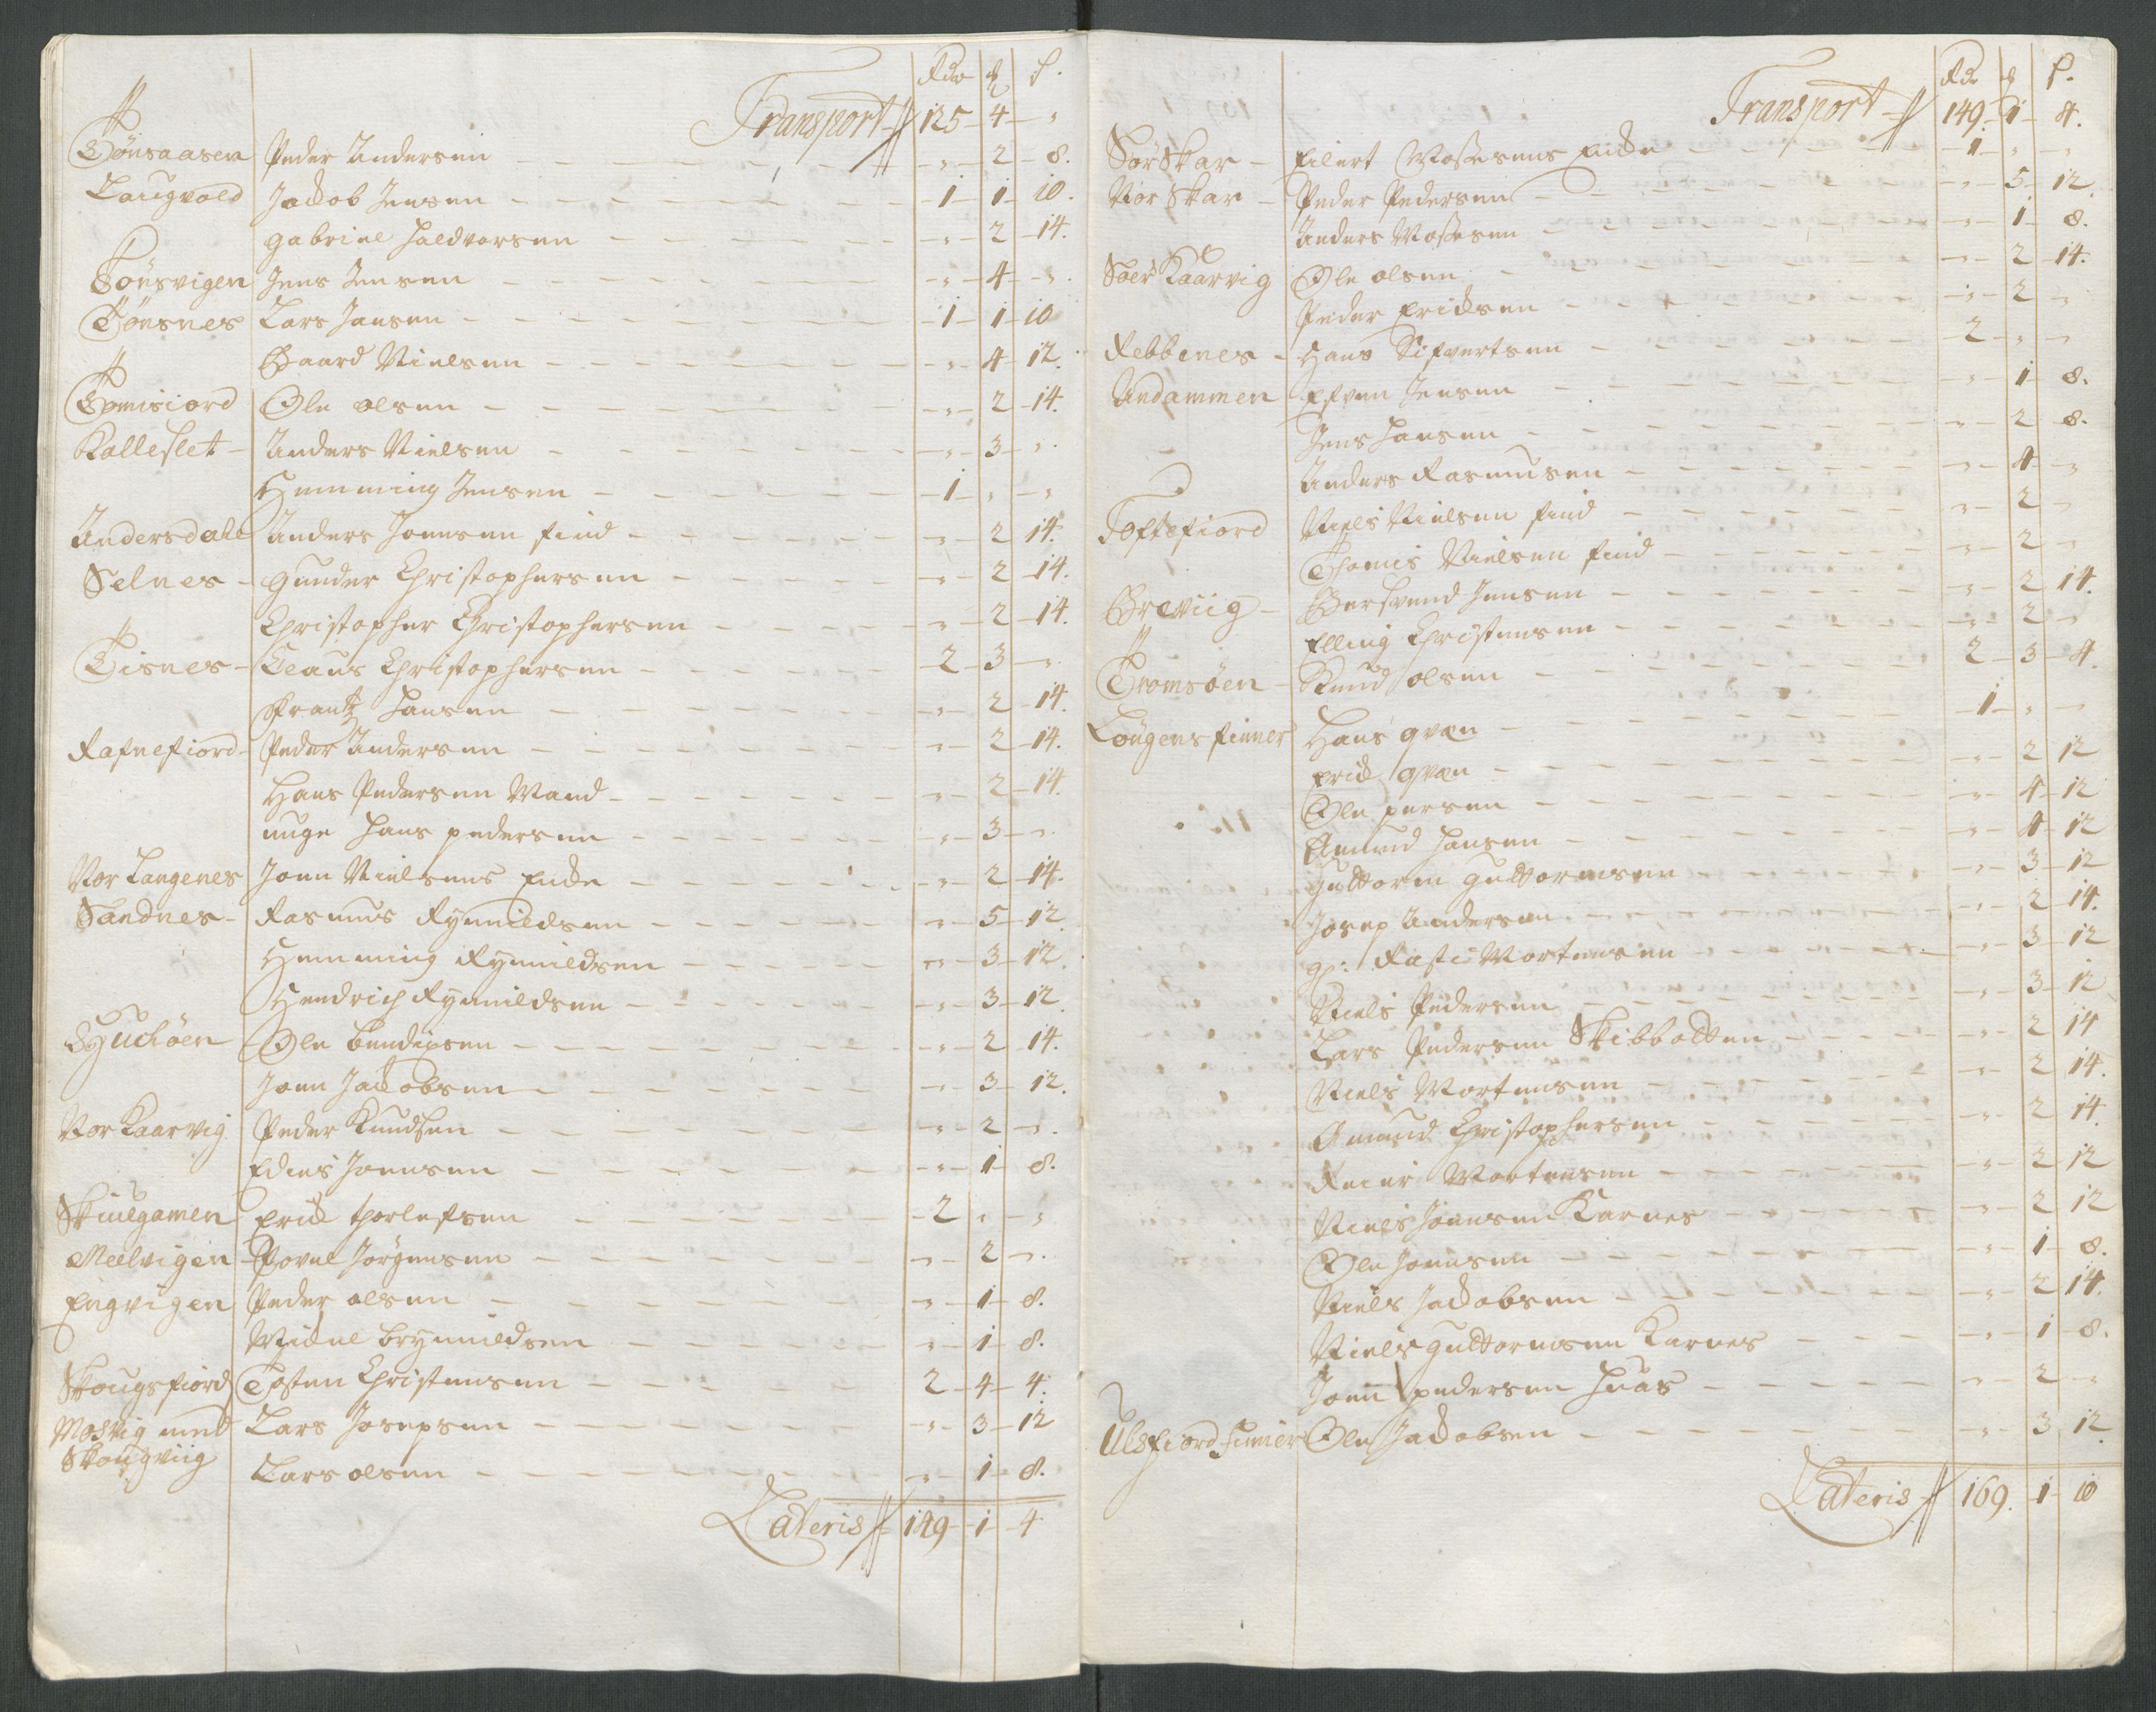 Rdr ß.
Transport 125 4 "
Tönsaasen Peder Andersen " 2 8.
Laugvold Jackob Jensen 1 1 10.
Gabriel Haldvorsen " 2 14.
Tönsvigen Jens Jensen " 4 "
Tönsnes Lars Jansen 1 1 10
Baard Nielsen " 4 12.
Tomisiord Ole olsen " 2 14.
Kalleslet Anders Nielsen " 3 "
Hemming Jensen 1 " "
Andersdahl Anders Joensen find " 2 14.
Selnes Gunder Christophersen " 2 14.
Christopher Christophersen " 2 14.
Tisnes Claus Christophersen 2 3 "
Frantz Hansen " 2 14.
Rafnefiord Peder Andersen " 2 14.
Hans Pedersen Mand " 2 14.
unge Hans pedersen " 3 "
Nor Langenes Joen Nielsens Encke " 2 14.
Sandnes Rasmus Rynnildsen " 5 12
Hemming Rynnildsen " 3 12.
Hendrich Rynnildsen " 3 12.
Ole bendixsen " 2 14.
Joen Jackobsen " 3 12.
Nor Kaarvig Peder Knudsen " 2 "
Joensen " 1 8.
Skiulgamen Erick thorlefsen 2 " "
Meelvigen Povel Jörgensen " 2 "
Engvigen Peder olsen " 1 8.
Mickel brynnildsen " 1 8.
Skougsfiord Tosten Christensen 2 4 4.
Mosvig med Lars Josepsen " 3 12
Skougviig
Lars olsen " 1 8.
Lateris 149 1 4
Rdr ß.
Transport 149 1 4.
Sör Skar Eilert Mossesens Encke 1 " "
Nor Skar Peder Pedersen " 5 12
Anders Mossesen " 1 8.
Söer Kaarvig Ole olsen " 2 14.
Peder Ericksen " 2 "
Rebbenes Hans Sifvertsen 2 " "
Andammen Efven Jensen " 1 8.
Jens Hansen " 2 8.
Anders Rasmusen " 4 "
Toftefiord Niels Nielsen find " 2 "
Thomis Nielsen find " 2 "
Greviig Bersvend Jensen " 2 14.
Elling Christensen " 2 "
Tromsöen Knud olsen 2 3 4.
Löngens finner Hans qvæn 1 " "
Erick qvæn " 2 12
Ole persen " 4 12
Amund Hansen " 4 12
Guttorm Guttormsen " 3 12
Josep Andersen " 2 14.
Mortensen " 3 12
Niels Pedersen " 3 12
Lars Pedersen Skibbotten " 2 14
Niels Mortensen " 2 14.
Amund Christophersen " 2 14.
Reier Mortensen " 2 12
Niels Joensen Karnes " 2 12
Ole Joensen " 1 8.
Niels Jackobsen " 2 14.
Niels Guttormsen Karnes " 1 8.
Joen pedersen " 2 "
Ulsfiord finner Ole Jackobsen " 3 12.
Lateris 169. 1 10